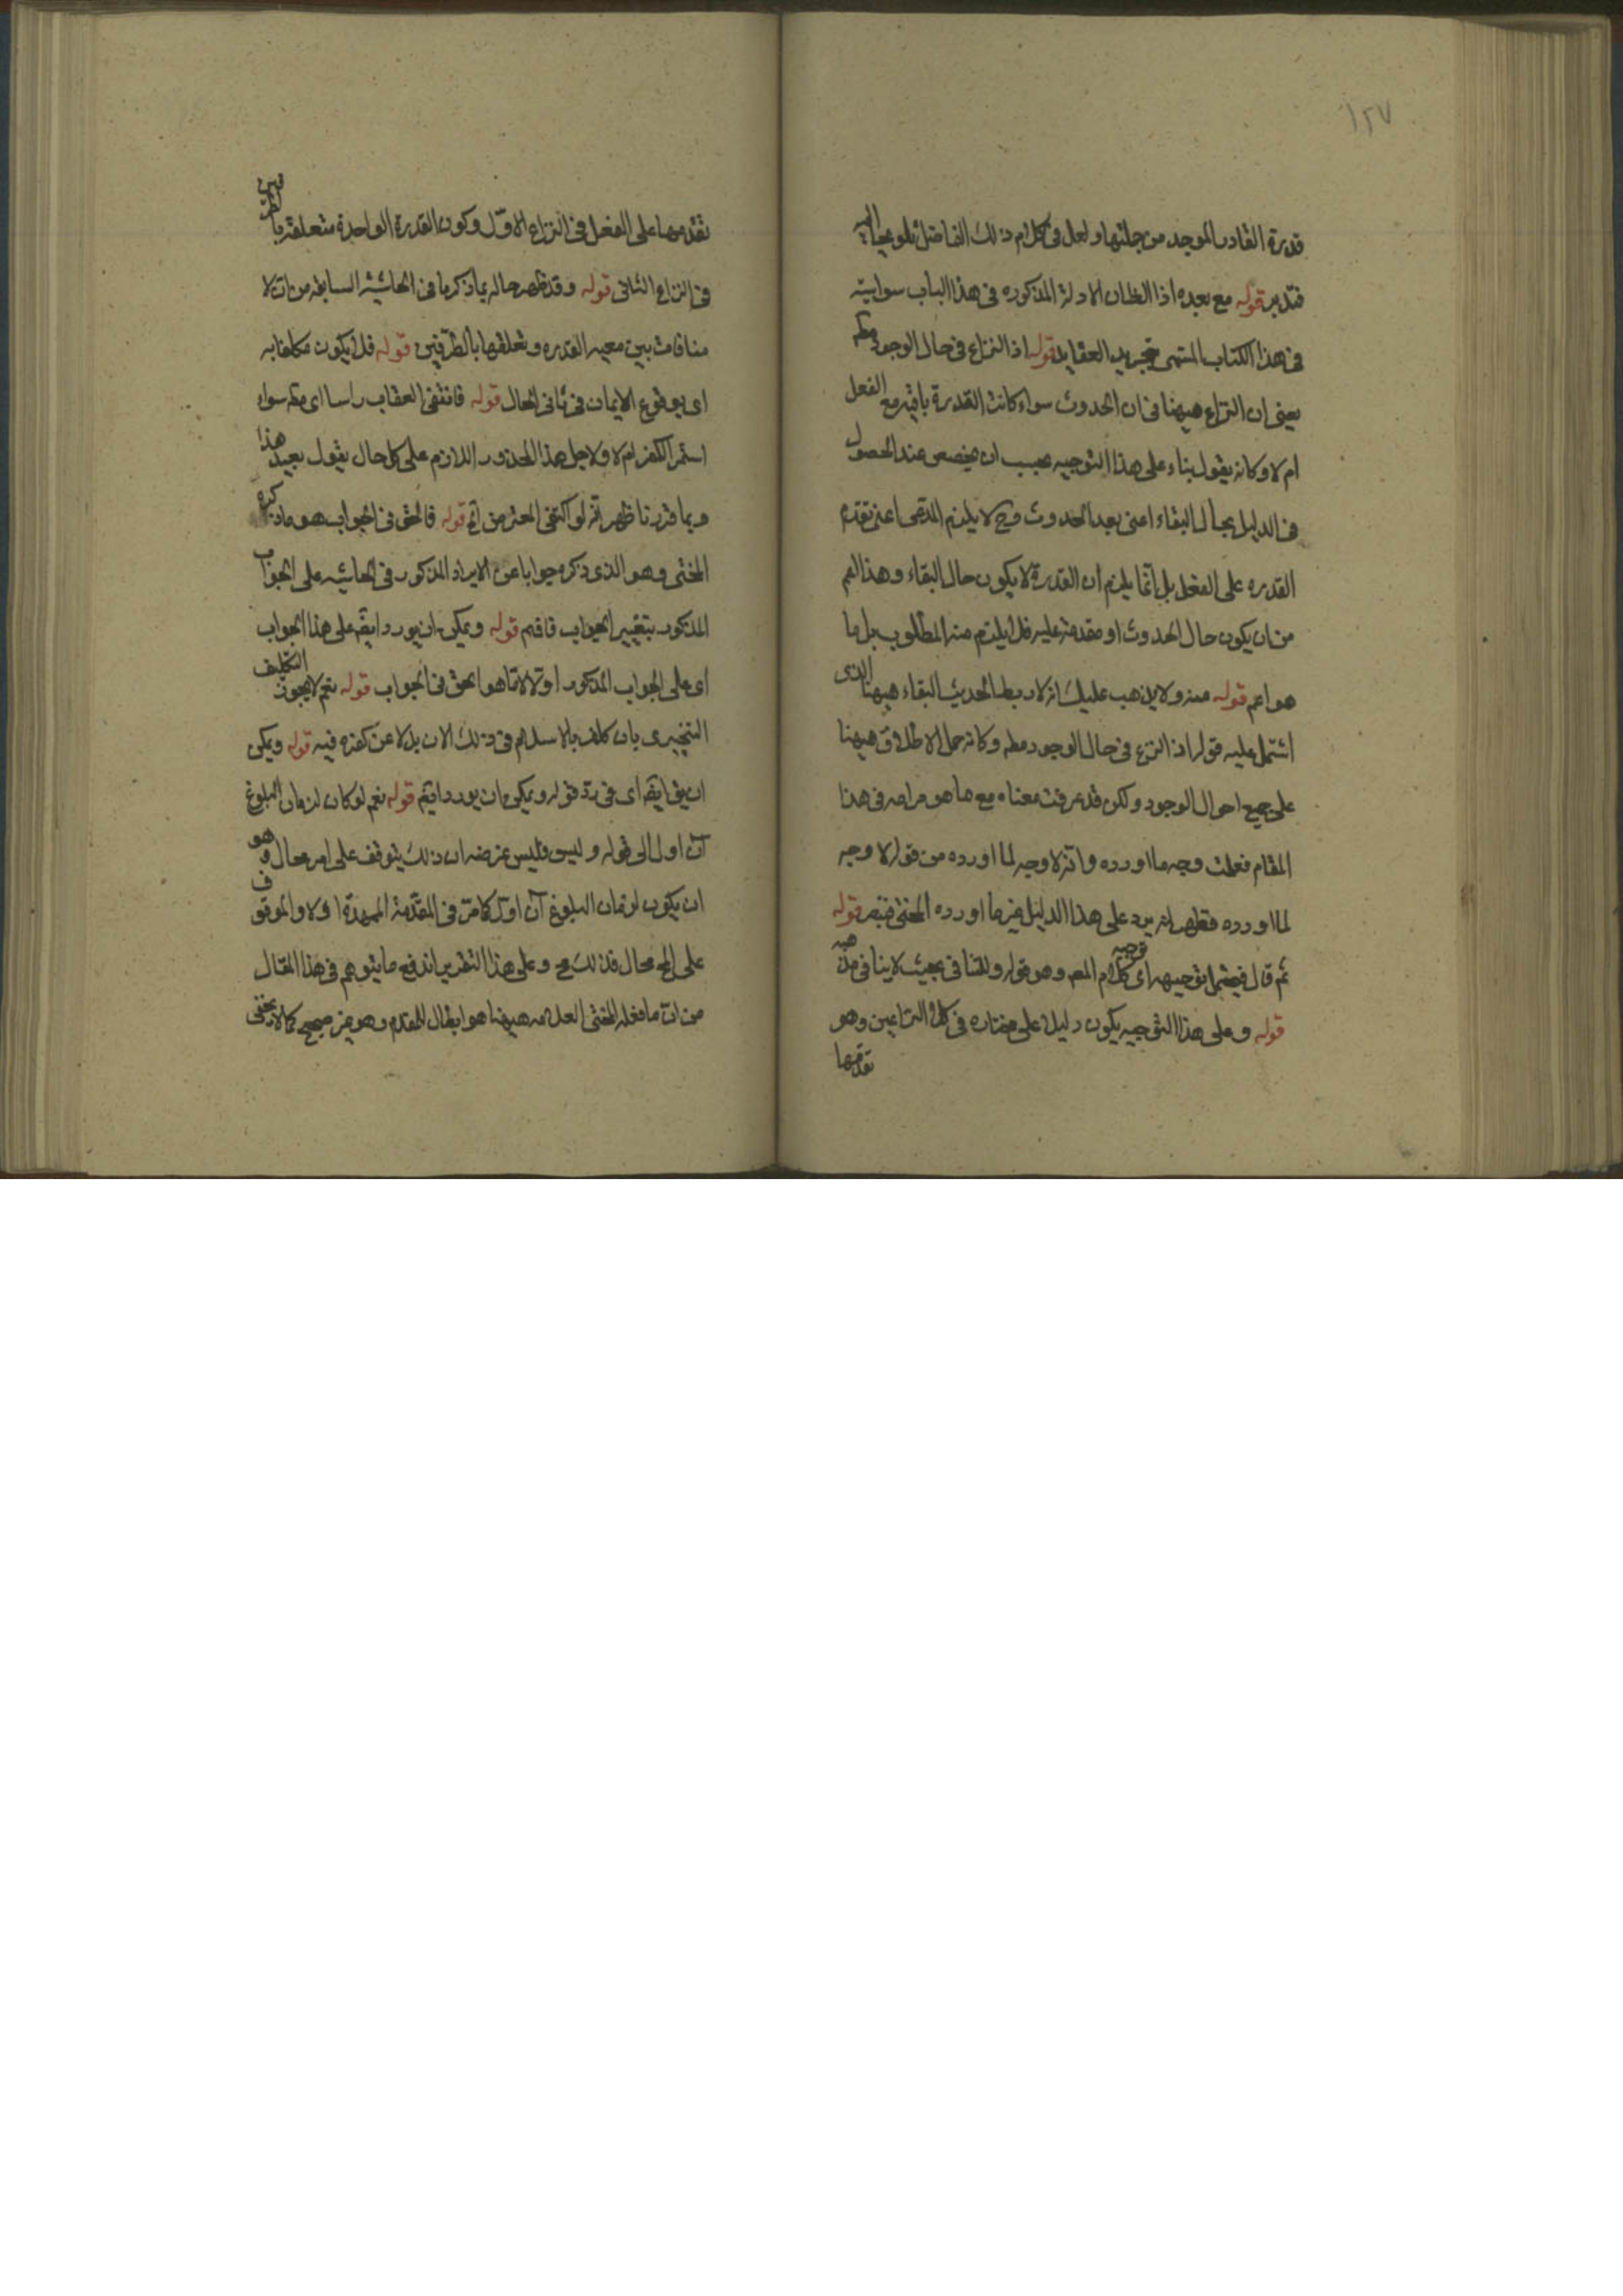 ١٢٧
قدرة القادر الموجد من جملتها ولعل فى كلام ذلك الفاضل تلويحا اليه
فتدبر قوله مع بعده اذ الظان الادلة المذكوره فى هذا الباب سوابيته
فى هذا الكتاب المسمى بتجريد العقايد قوله اذ النزاع فى حال الوجود مطه
يعنى ان النزاع هيهنا فى ان الحدوث سواء كانت القدرة باقية مع الفعل
ام لا وكانه يقول بناء على هذا التوجيه يجب ان يخصص عند الحصول
فى الدليل بحال البقاء اعنى بعد الحدوث وح لا يلزم المدعى اعنى تقدم
القدره على الفعل بل انما يلزم ان القدرة لا يكون حال البقاء وهذا اعم
من ان يكون حال الحدوث او مقدمة عليه فلا يلزم منه المطلوب بل ما
هو اعم قوله منه ولا يذهب عليك انه لا ربط لحديث البقاء هيهنا الذى
اشتمل عليه قوله اذ النزاع فى حال الوجود مطه وكانه حمل الاطلاق هيهنا
على جميع احوال الوجود ولكن قد عرفت معناه مع ما هو مرامه فى هذا
المقام فعلمت وجه ما اورده وانه لا وجه لما اورده من قوله لا وجه
لما اورده فظهر انه يرد على هذا الدليل غير ما اورده المحشى فتبصر قوله
ثم قال فيحتمل توجيهه اى توجيه كلام المصه وهو قوله وللتنافى بحيث لا ينافى مذهبه
قوله وعلى هذا التوجيه يكون دليلا على مختاره فى كلا النزاعين وهو
تقدمها
تقدمها على الفعل فى النزاع الاول وكون القدرة الواحدة متعلقة بالطرفين
فى النزاع الثانى قوله وقد ظهر حاله بما ذكرنا فى الحاشية السابقه من ان لا
منافات بين معيه القدره وتعلقها بالطرفين قوله فلا يكون مكلفا به
اى بوقوع الايمان فى ثانى الحال قوله فانتفى العقاب راسا اى مطه سواء
استمر الكفر ام لا ولاجل هذا المحذور اللازم على كل حال يقول بعيد هذا
وبما قررنا ظهر انه لو اكتفى المعترض آه قوله فالحق فى الجواب هو ما ذكره
المحشى وهو الذى ذكره جوابا عن الايراد المذكور فى الحاشيه على الجواب
المذكور بتغيير الجواب فافهم قوله ويمكن ان يورد ايضه على هذا الجواب
اى على الجواب المذكور اولا لا ما هو الحق فى الجواب قوله نعم لا يجوز التكليف
التنجيزى بان كلف بالاسلام فى ذلك الان بدلا عن كفره فيه قوله ويمكن
ان يق ايضه اى فى رد قوله ويمكن ان يورد ايضه قوله نعم لو كان لزمان البلوغ
آن اول الى قوله وليس فليس غرضه ان ذلك يتوقف على امر محال وهو
ان يكون لزمان البلوغ آن اول كما مر فى المقدمة الممهدة اولا والموقوف
على المح محال فذلك مح وعلى هذا التقدير اندفع ما يتوهم فى هذا المقال
من ان ما فعله المحشى العلامه هيهنا هو ابطال المقدم وهو غير صحيح كما لا يخفى